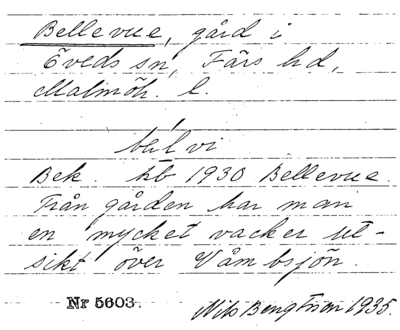 Bellevue, gård i
Öveds sn, Färs hd,
Malmöh. l.
bäl vi
Bek. kb 1930 Bellevue.
Från gården har man
en mycket vacker ut-
sikt över Våmbsjön.
Nr 5603.
Nils Bengtsson 1935.